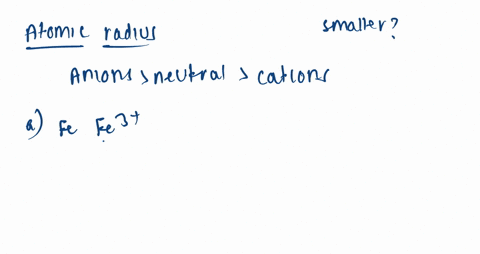 Atomic radius
smaller?
Anions > neutral > cations
a) Fe Fe³⁺